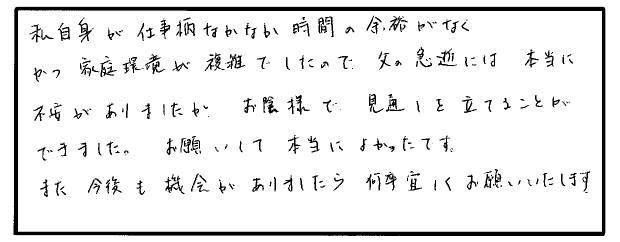 私自身が仕事柄なかなか時間の余裕がなく
かつ家庭環境が複雑でしたので、父の急逝には本当に
不安がありましたが、お陰様で見通しを立てることが
できました。お願いして本当によかったです。
また今後も機会がありましたら何卒宜しくお願いいたします